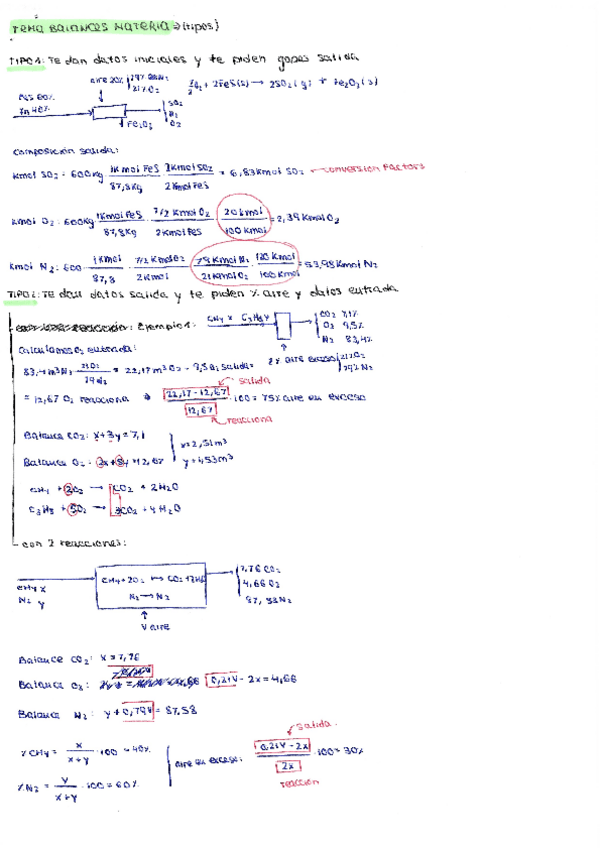 TEMA BALANCES MATERIA → (tipos)
TIPO 1: Te dan datos iniciales y te piden gases salida
aire 20% 79% N2 21% O2
7/2 O2 + 2FeS(s) → 2SO2(g) + Fe2O3(s)
SO2
N2
O2
Fe2O3
Composición salida:
Kmol SO2: 600Kg · 1KmolFeS/87,8Kg · 2KmolSO2/2KmolFeS = 6,83Kmol SO2 → conversion factors
Kmol O2: 600Kg · 1KmolFeS/87,8Kg · 7/2 KmolO2/2KmolFeS · 20 Kmol/100 Kmol = 2,39 Kmol O2
Kmol N2: 600 · 1Kmol/87,8 · 7/2 KmolO2/2Kmol · 79 Kmol N2/21 KmolO2 · 120 Kmol/100 Kmol = 53,98 Kmol N2
TIPO 2: Te dan datos salida y te piden % aire y datos entrada
Ejemplo 1: CH4 x C3H8 y
CO2 7,1%
O2 9,5%
N2 83,4%
Calculamos O2 entrada:
% aire exceso 21 O2 79% N2
83,4m³N2 · 21O2/79N2 = 22,17m³O2 - 9,5O2 salida =
salida
= 12,67 O2 reacciona → 22,17-12,67/12,67 · 100 = 75% aire en exceso
reacciona
Balance CO2: x+3y=7,1
x=2,51m³
Balance O2: 2x+5y=12,67
y=1,53m³
CH4 + 2O2 → CO2 + 2H2O
C3H8 + 5O2 → 3CO2 + 4H2O
con 2 reacciones:
CH4 x
N2 y
N2 → N2
7,76 CO2
4,66 O2
87,58 N2
V aire
Balance CO2: x=7,76
Balance O2: 0,21V - 2x = 4,66
Balance N2: y + 0,79V = 87,58
salida
%CH4 = x/x+y · 100 = 40%
aire en exceso: 0,21V - 2x/2x · 100 = 30%
%N2 = y/x+y · 100 = 60%
reaccion